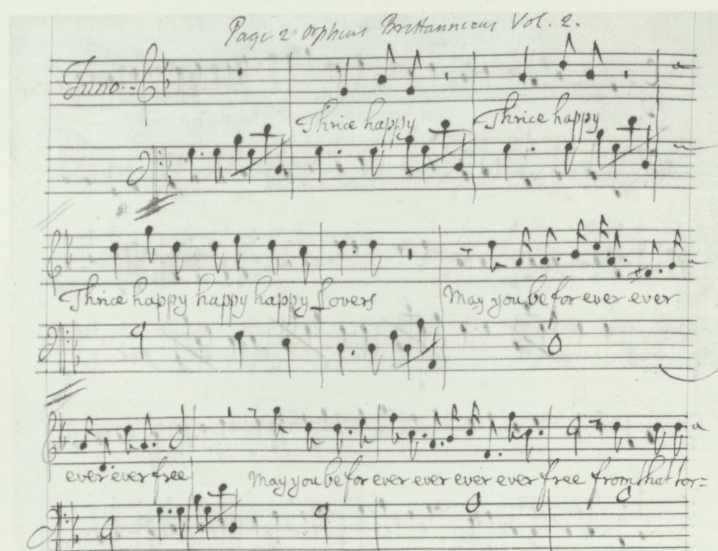 Page 2 Orpheus Brittannicus Vol. 2.
Juno.
Thrice happy Thrice happy
Thrice happy happy happy Lovers May you be for ever ever
ever ever free May you be for ever ever ever ever free from that tor=